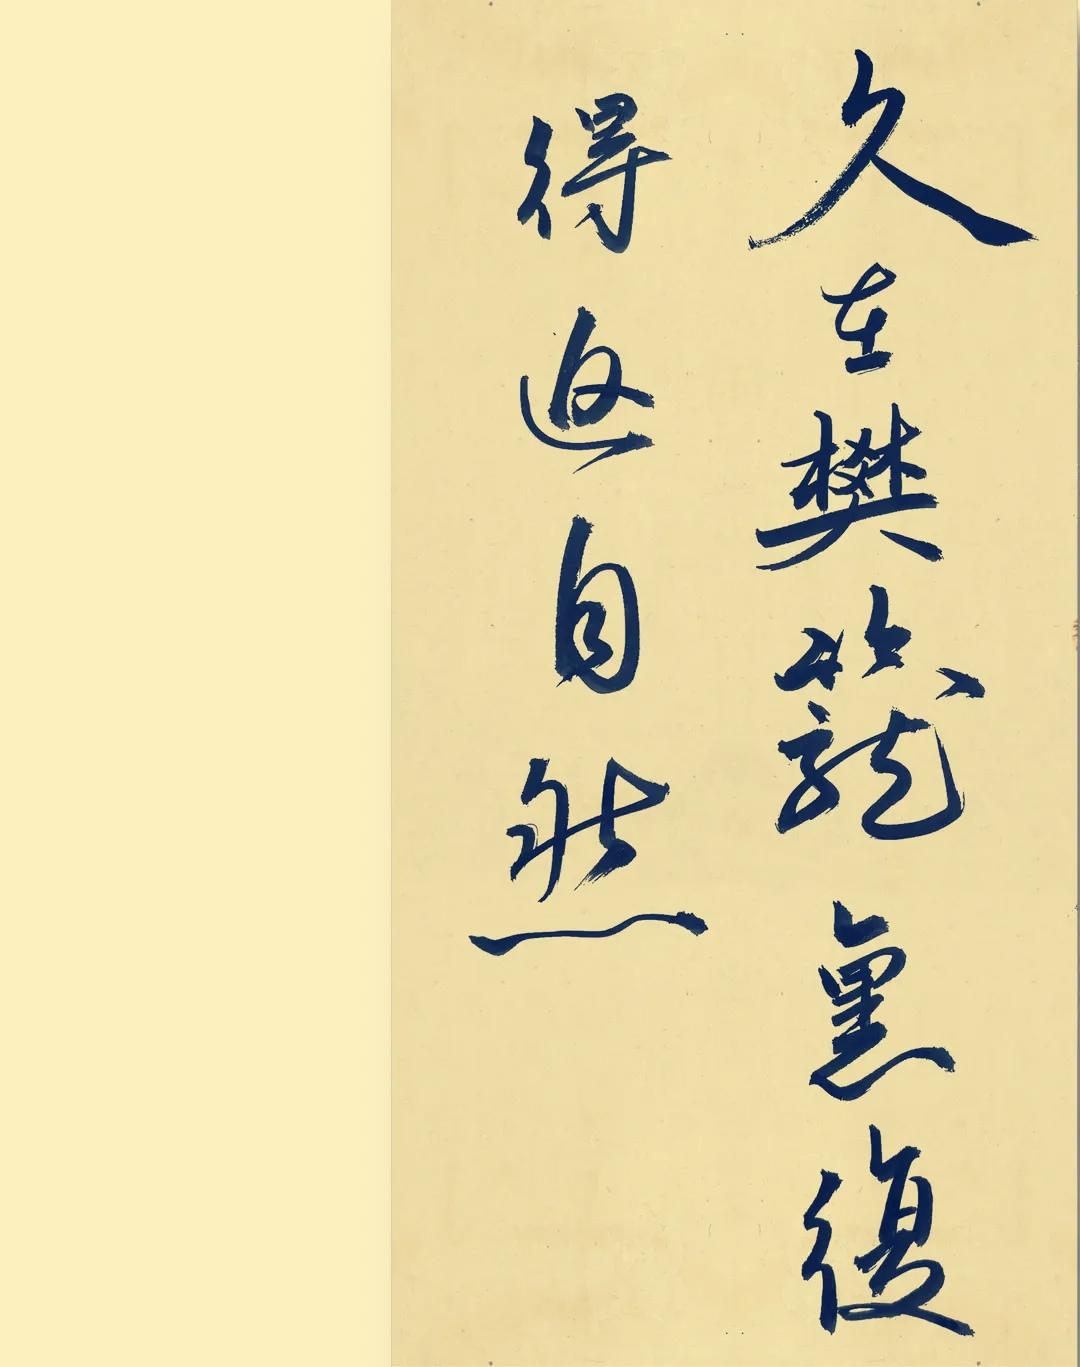 久在樊籠裏復
得返自然